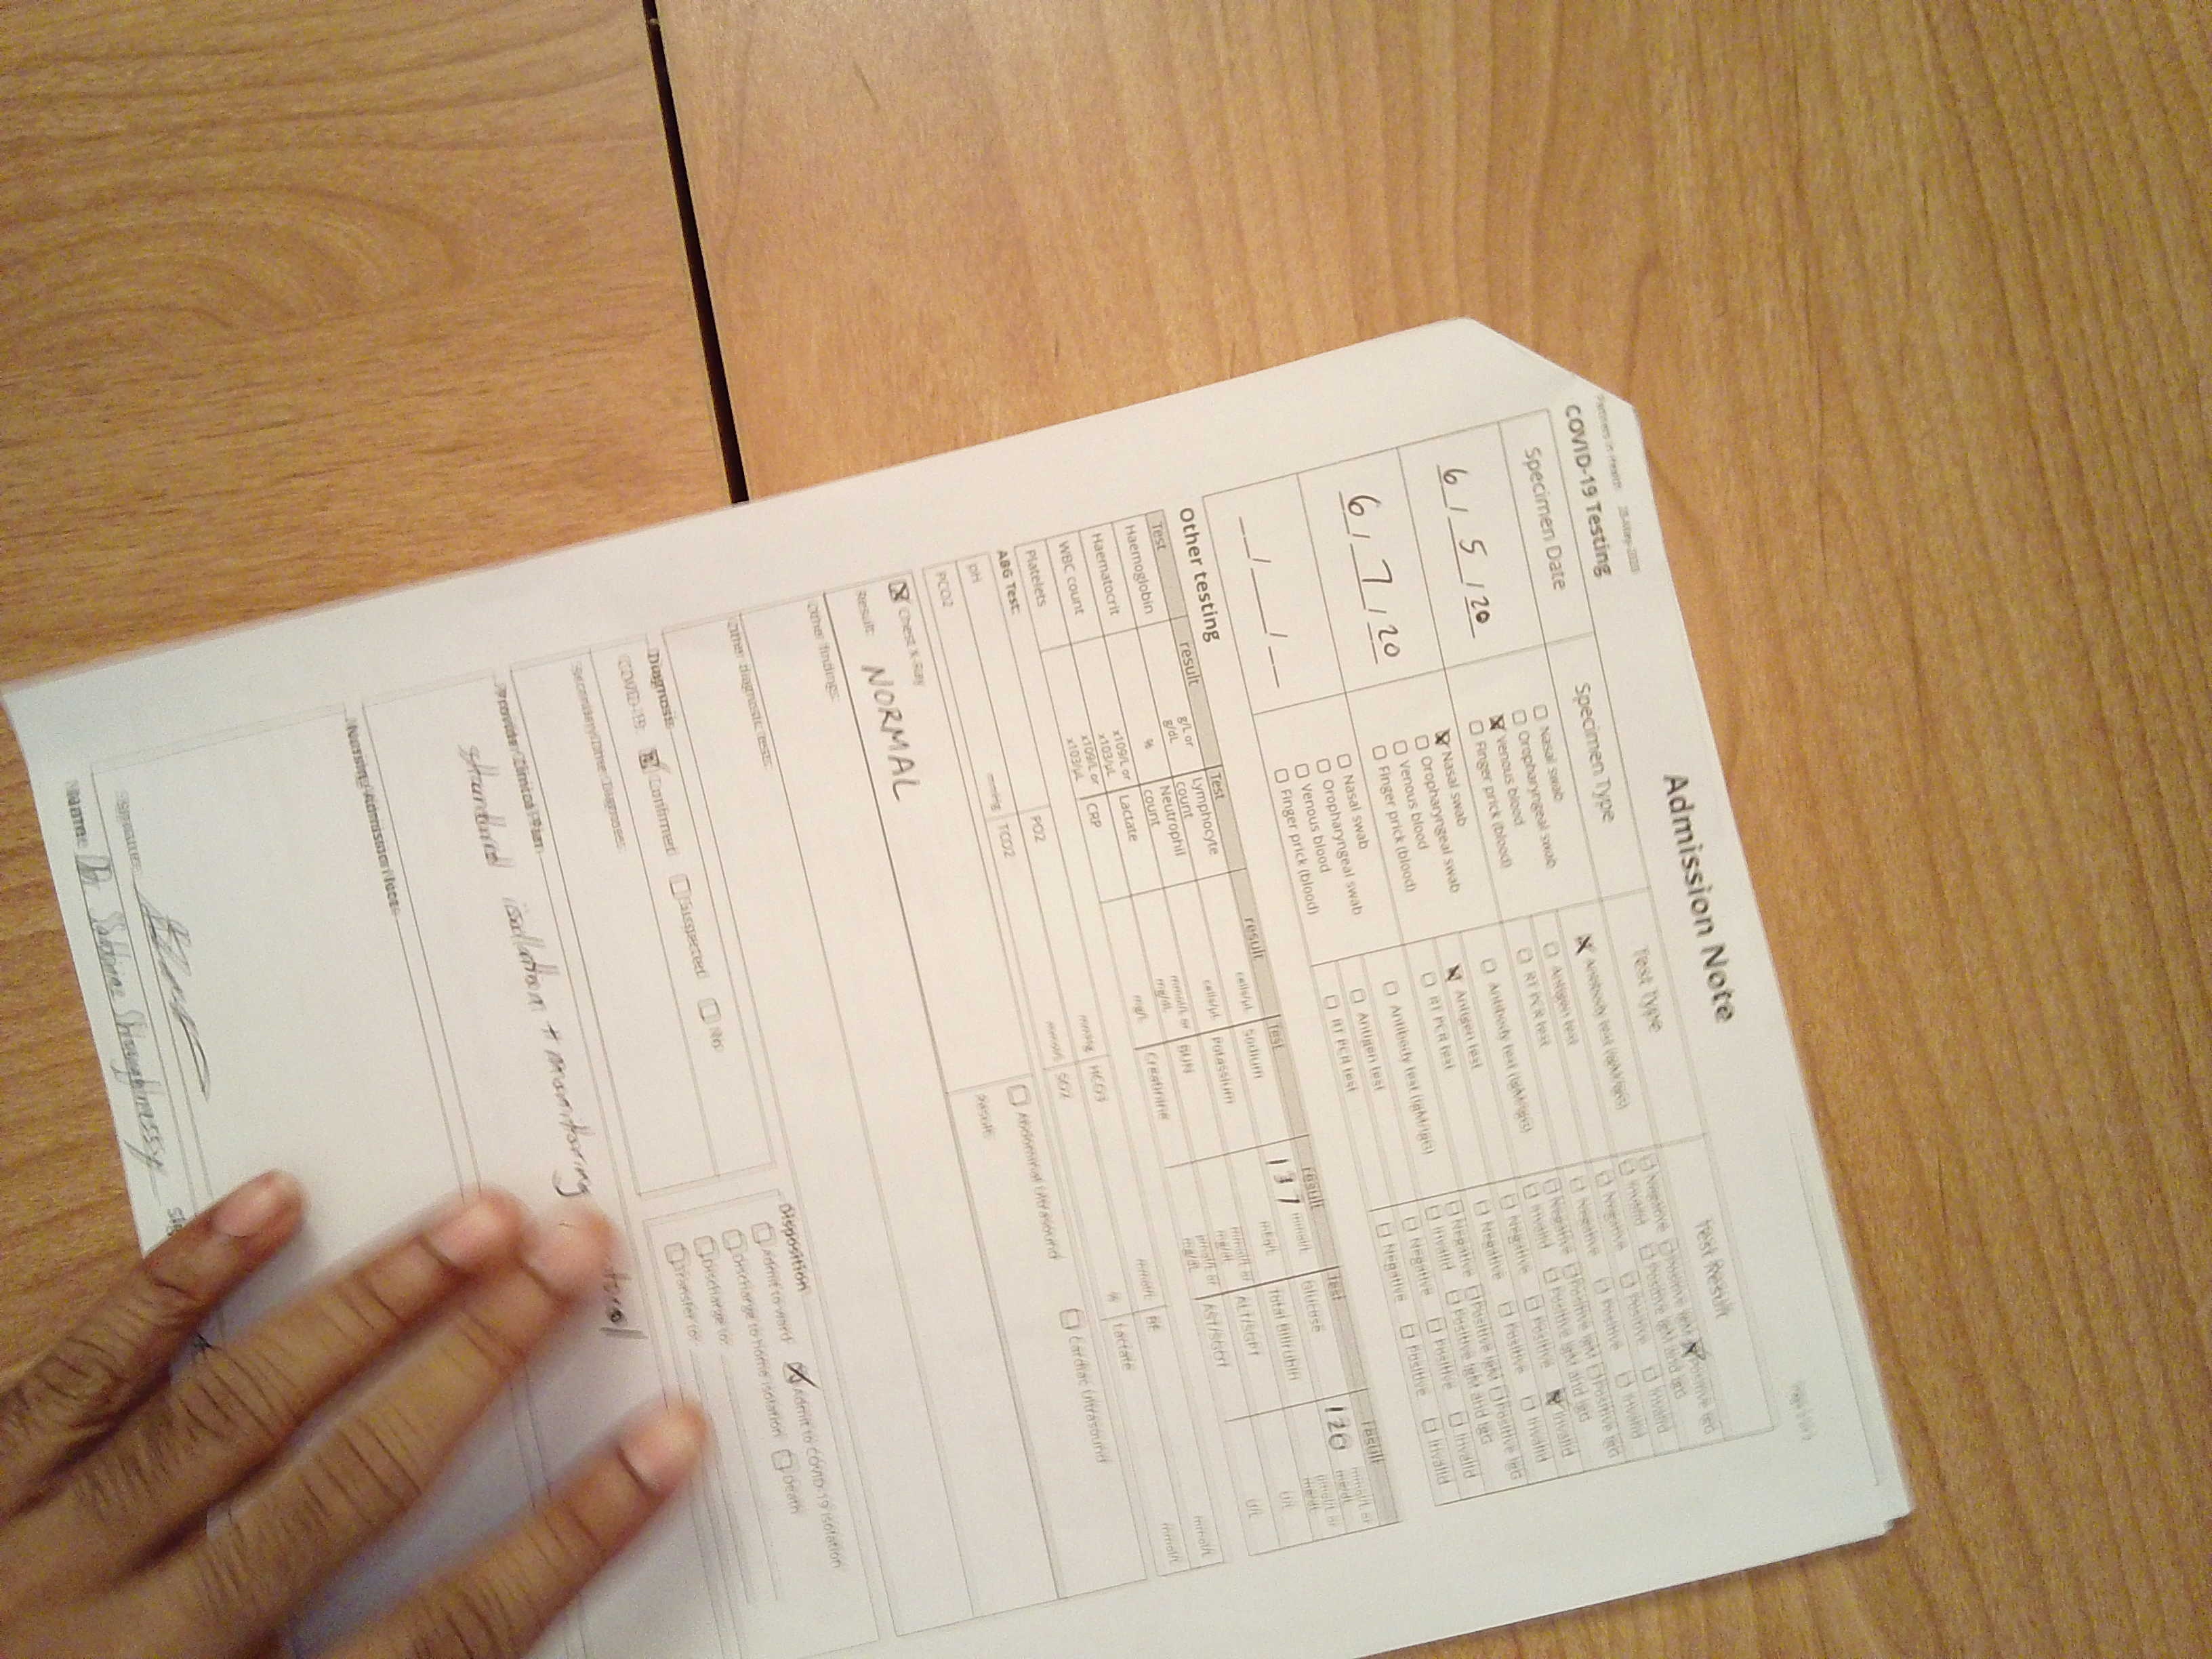 Partners in Health
Admission Note
COVID-19 Testing
Specimen Date
Specimen Type
Test Type
Test Result
6 / 5 / 20
☐ Nasal swab
☐ Oropharyngeal swab
☒ Venous blood
☐ Finger prick (blood)
☒ Antibody test (IgM/IgG)
☐ Antigen test
☐ RT PCR test
☐ Negative ☐ Positive IgM ☒ Positive IgG
☐ Invalid ☐ Positive IgM and IgG
☐ Negative ☐ Positive ☐ Invalid
☐ Negative ☐ Positive ☐ Invalid
6 / 7 / 20
☒ Nasal swab
☐ Oropharyngeal swab
☐ Venous blood
☐ Finger prick (blood)
☐ Antibody test (IgM/IgG)
☒ Antigen test
☐ RT PCR test
☐ Negative ☐ Positive IgM ☐ Positive IgG
☐ Invalid ☐ Positive IgM and IgG
☐ Negative ☐ Positive ☒ Invalid
☐ Negative ☐ Positive ☐ Invalid
__ / __ / __
☐ Nasal swab
☐ Oropharyngeal swab
☐ Venous blood
☐ Finger prick (blood)
☐ Antibody test (IgM/IgG)
☐ Antigen test
☐ RT PCR test
☐ Negative ☐ Positive IgM ☐ Positive IgG
☐ Invalid ☐ Positive IgM and IgG
☐ Negative ☐ Positive ☐ Invalid
☐ Negative ☐ Positive ☐ Invalid
Other testing
Test result Test result Test result Test result
Haemoglobin g/L or g/dL Lymphocyte count cells/µL Sodium 137 mmol/L Glucose 120 mmol/L or mg/dL
Haematocrit % Neutrophil count cells/µL Potassium mEq/L Total Bilirubin µmol/L or mg/dL
WBC count x109/L or x103/µL Lactate mmol/L or mg/dL BUN mmol/L or mg/dL ALT/SGPT U/L
Platelets x109/L or x103/µL CRP mg/L Creatinine µmol/L or mg/dL AST/SGOT U/L
ABG Test:
pH PO2 mmHg HCO3 mmol/L BE mmol/L
PCO2 mmHg TCO2 mmol/L SO2 % Lactate mmol/L
☒ Chest x-ray
☐ Abdominal Ultrasound
☐ Cardiac Ultrasound
Result: NORMAL
Result:
Other findings:
Other diagnostic tests:
Diagnosis
COVID-19: ☒ Confirmed ☐ Suspected ☐ No
Secondary/other Diagnoses:
Disposition
☐ Admit to ward ☒ Admit to COVID-19 isolation
☐ Discharge to home isolation ☐ Death
☐ Discharge to:
☐ Transfer to:
Provider Clinical Plan
standard isolation + monitoring
Nursing Admission Note
Name: Dr Sabine Shaughnessy